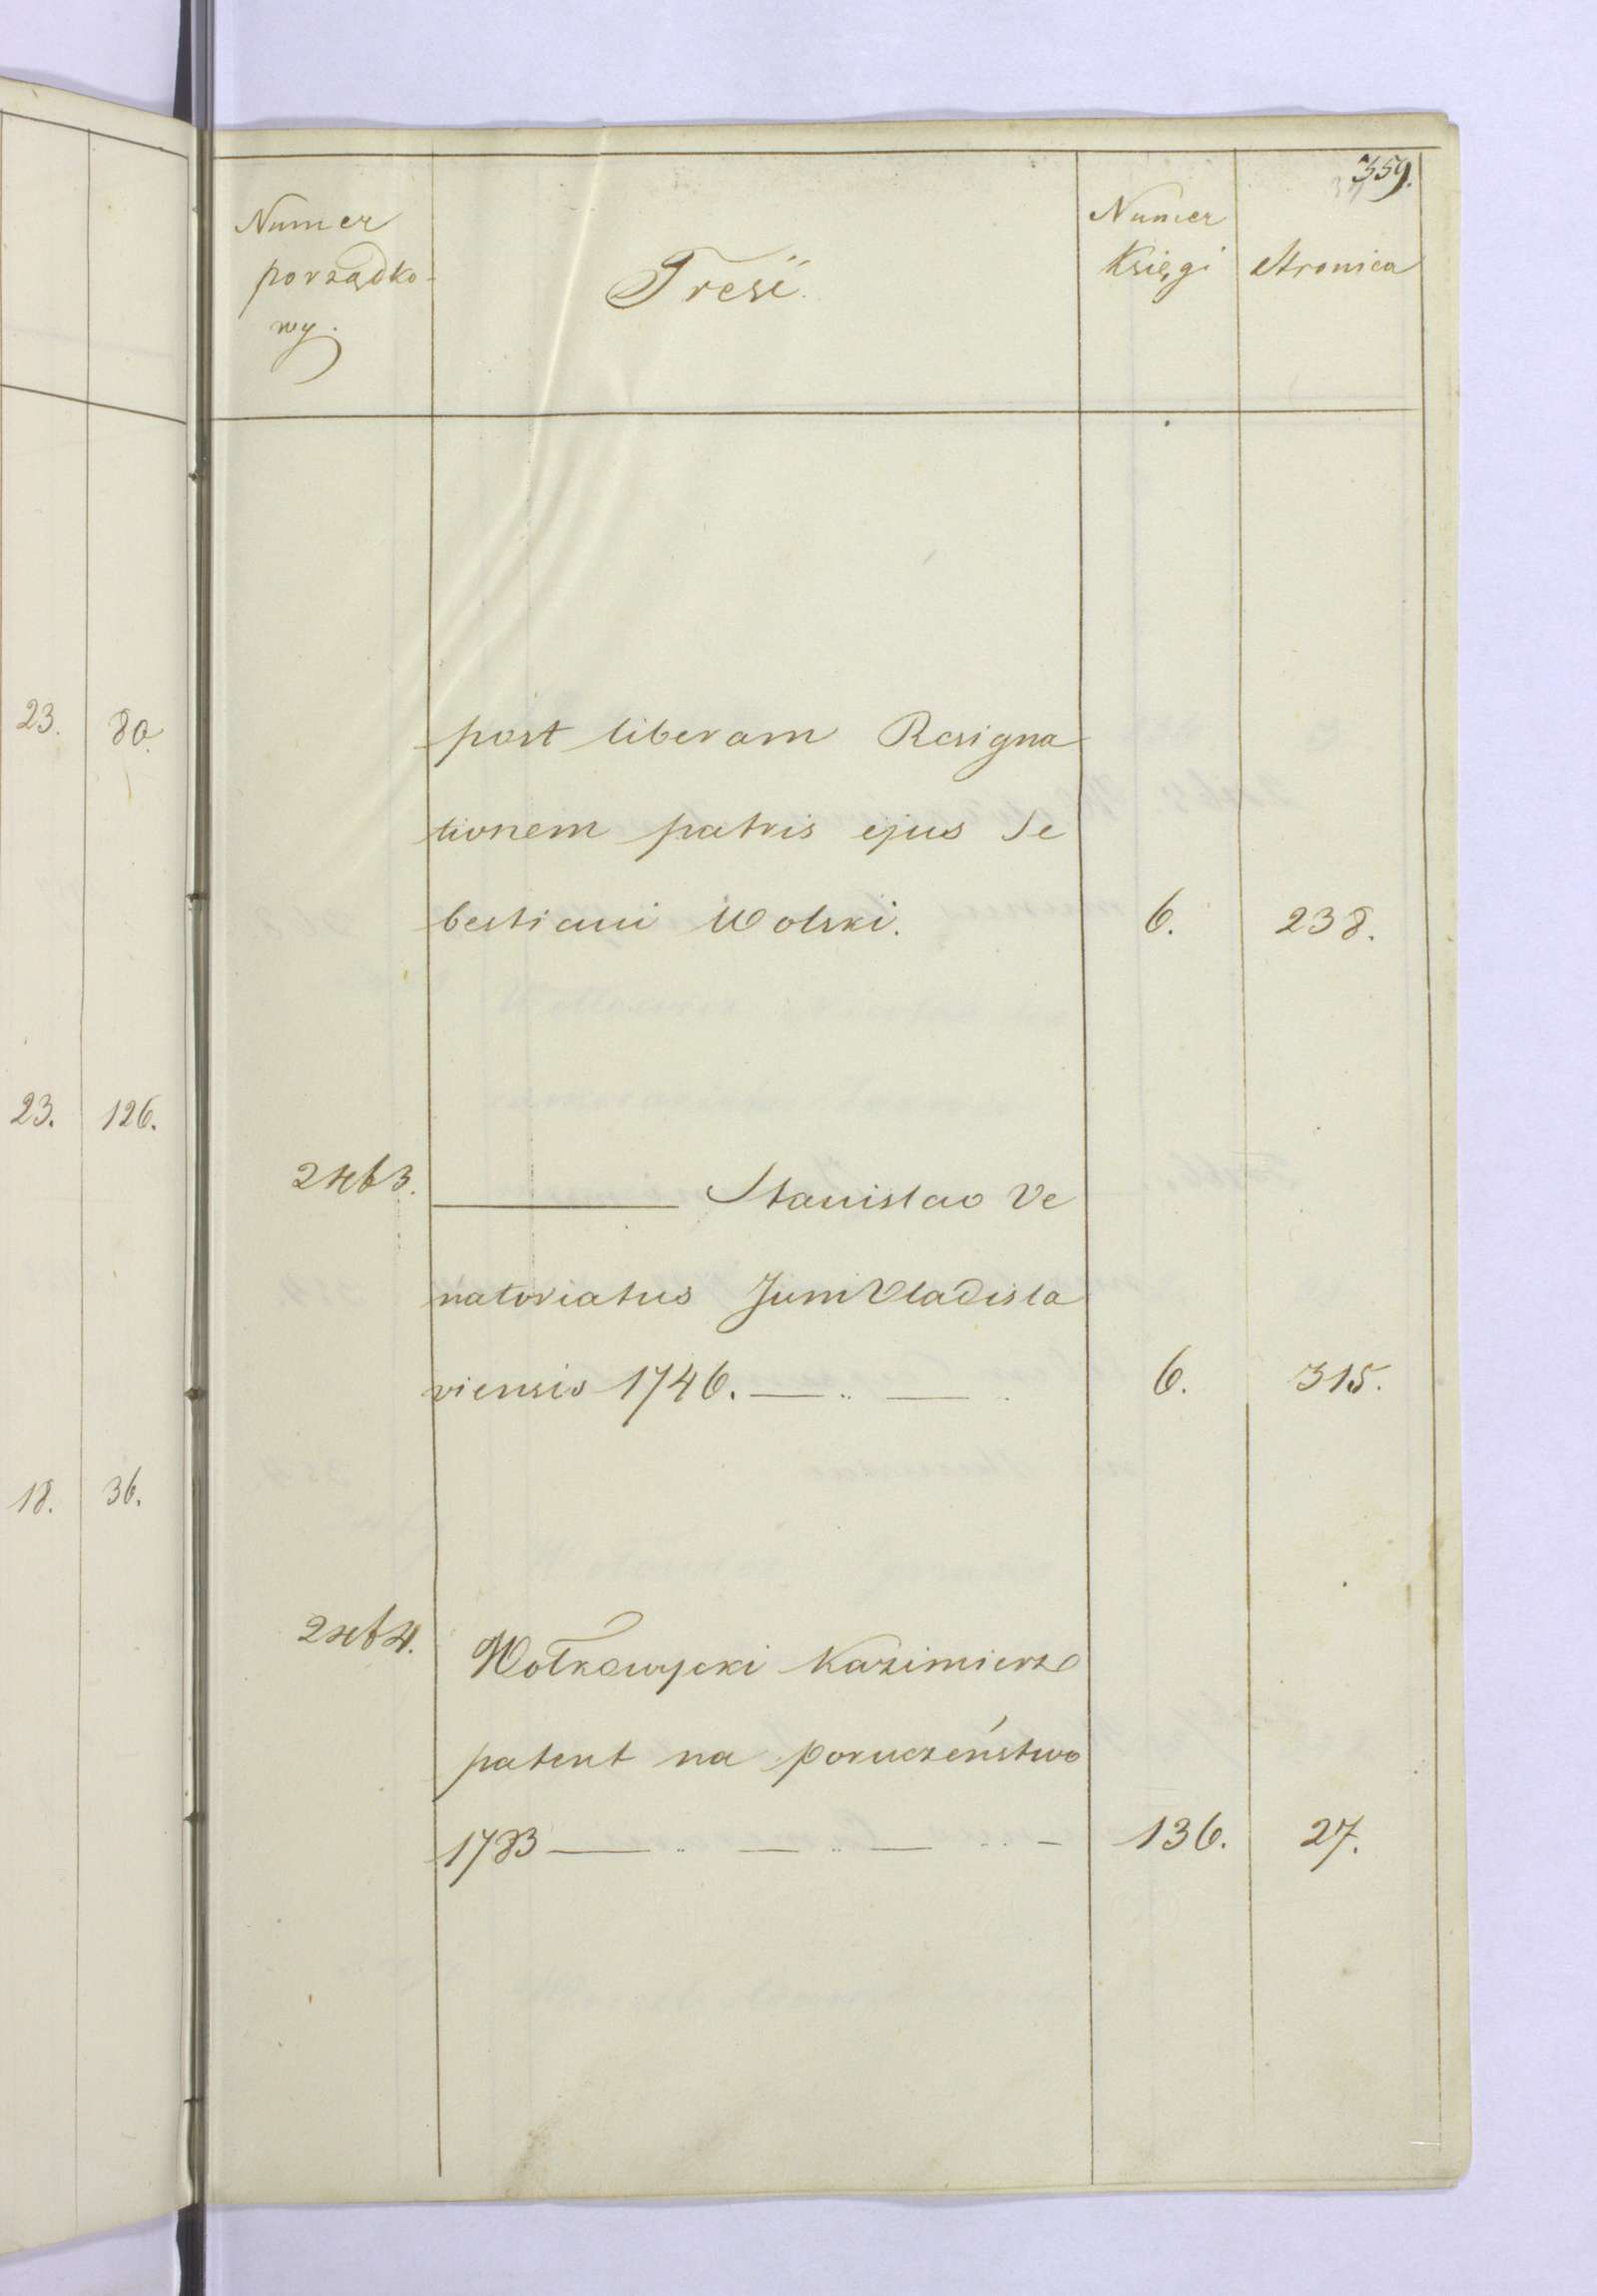 23. 80.
23. 126.
18. 36.
359.
Numer
porządko-
wy.
Treść.
Numer
Księgi
Stronica
post liberam Resigna
tionem patris ejus Se
bestiani Wolski. 6. 238.
2463. Stanislao Ve
natoriatus JuniVladisla
viensis 1746. 6. 315.
2464. Wołkowycki Kazimierz
patent na poruczeństwo
1783 136. 27.